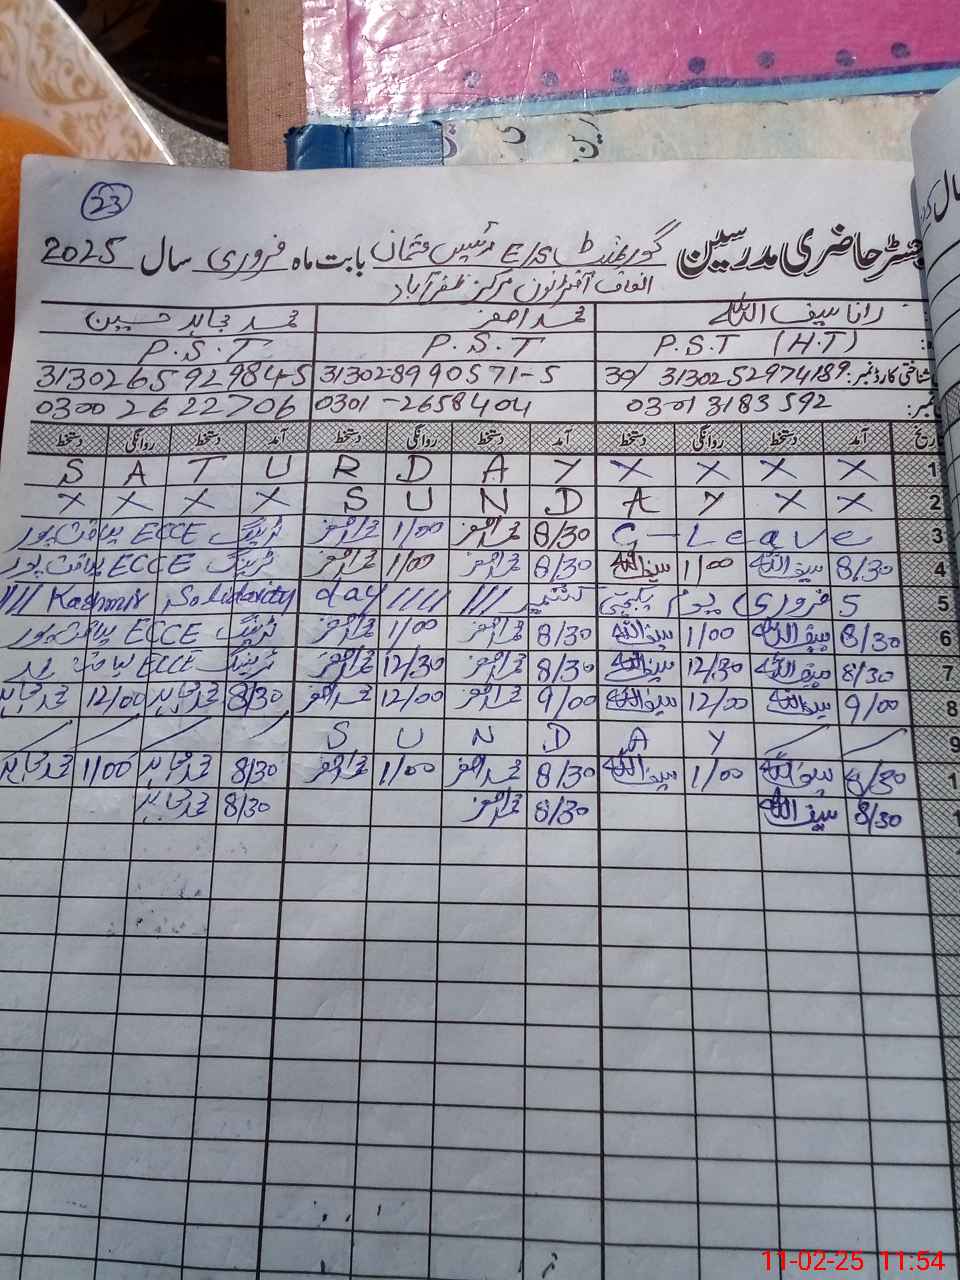 23
رجسٹر حاضری مدرسین گورنمنٹ E/S رئیس عثمان بابت ماہ فروری سال 2025
آفٹرنون مرکز ظفر آباد
رانا سیف اللہ محمد اصغر محمد مجاہد حسین
P.S.T (H.T) P.S.T P.S.T
شناختی کارڈ نمبر: 30/ 3130252974189 313028990571-5 313026592984-5
نمبر: 03013183592 0301-2658404 0300 2622706
تاریخ آمد دستخط روانگی دستخط آمد دستخط روانگی دستخط آمد دستخط روانگی دستخط
1 S A T U R D A Y X X X X
2 X X X X S U N D A Y X X
3 G-Leave 8/30 محمد اصغر 1/00 محمد اصغر ٹریننگ ECCE بہاولپور
4 8/30 سیف اللہ 1/00 سیف اللہ 8/30 محمد اصغر 1/00 محمد اصغر ٹریننگ ECCE بہاولپور
5 5 فروری یوم یکجہتی کشمیر /// //// Kashmir Solidarity day ///
6 8/30 سیف اللہ 1/00 سیف اللہ 8/30 محمد اصغر 1/00 محمد اصغر ٹریننگ ECCE بہاولپور
7 8/30 سیف اللہ 12/30 سیف اللہ 8/30 محمد اصغر 12/30 محمد اصغر ٹریننگ ECCE
8 9/00 سیف اللہ 12/00 سیف اللہ 9/00 محمد اصغر 12/00 محمد اصغر 8/30 محمد مجاہد 12/00 محمد مجاہد
9 S U N D A Y
1 8/30 سیف اللہ 1/00 سیف اللہ 8/30 محمد اصغر 1/00 محمد اصغر 8/30 محمد مجاہد 1/00 محمد مجاہد
1 8/30 سیف اللہ 8/30 محمد اصغر 8/30 محمد مجاہد
11-02-25 11:54